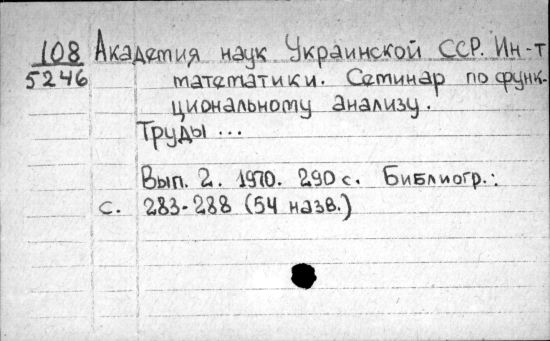 108 Академия наук Украинской ССР. Ин-т
5246 математики. Семинар по функ-
циональному анализу.
Труды ...
Вып. 2. 1970. 290 с. Библиогр.:
с. 283-288 (54 назв.)